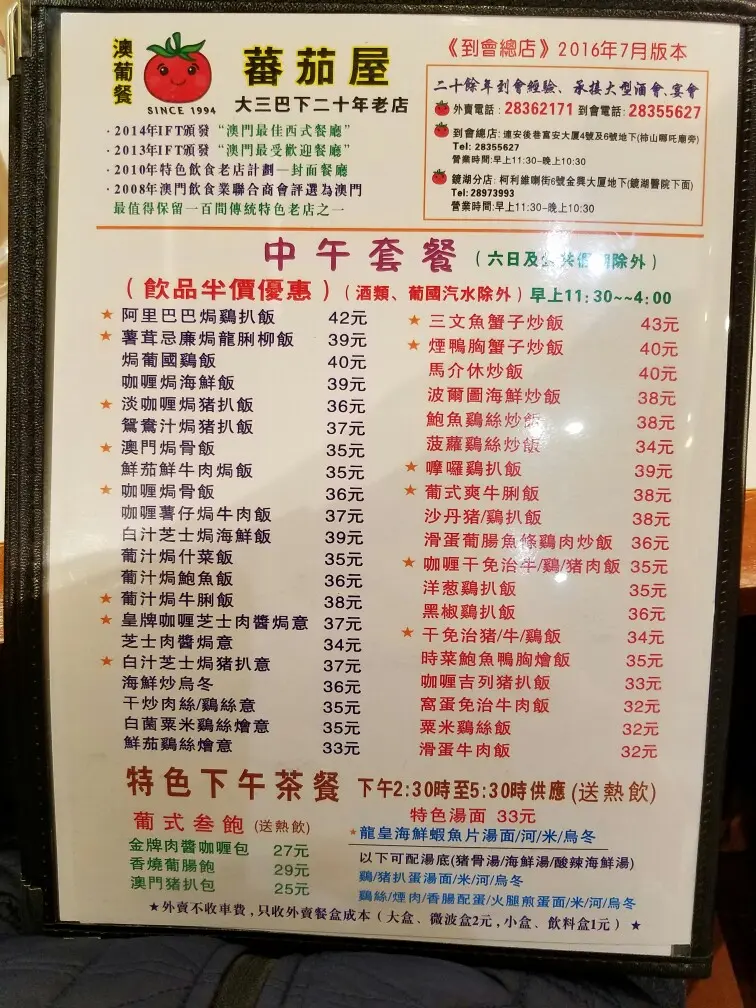 澳葡餐
蕃茄屋
SINCE 1994
大三巴下二十年老店
·2014年IFT頒發“澳門最佳西式餐廳”
·2013年IFT頒發“澳門最受歡迎餐廳”
·2010年特色飲食老店計劃—封面餐廳
·2008年澳門飲食業聯合商會評選為澳門
最值得保留一百間傳統特色老店之一
《到會總店》2016年7月版本
二十餘年到會經驗、承接大型酒會、宴會
外賣電話:28362171 到會電話:28355627
到會總店:連安後巷富安大廈4號及6號地下(柿山哪吒廟旁)
Tel: 28355627
營業時間:早上11:30-晚上10:30
鏡湖分店:柯利維喇街6號金興大厦地下(鏡湖醫院下面)
Tel: 28973993
營業時間:早上11:30-晚上10:30
中午套餐(六日及公共假期除外)
(飲品半價優惠)(酒類、葡國汽水除外)早上11:30~~4:00
★阿里巴巴焗鷄扒飯 42元
★薯茸忌廉焗龍脷柳飯 39元
焗葡國鷄飯 40元
咖喱焗海鮮飯 39元
★淡咖喱焗猪扒飯 36元
鴛鴦汁焗猪扒飯 37元
★澳門焗骨飯 35元
鮮茄鮮牛肉焗飯 35元
★咖喱焗骨飯 36元
咖喱薯仔焗牛肉飯 37元
白汁芝士焗海鮮飯 39元
葡汁焗什菜飯 35元
葡汁焗鮑魚飯 36元
★葡汁焗牛脷飯 38元
★皇牌咖喱芝士肉醬焗意 37元
芝士肉醬焗意 34元
★白汁芝士焗猪扒意 37元
海鮮炒烏冬 36元
干炒肉絲/鷄絲意 35元
白菌粟米鷄絲燴意 35元
鮮茄鷄絲燴意 33元
★三文魚蟹子炒飯 43元
★煙鴨胸蟹子炒飯 40元
馬介休炒飯 40元
波爾圖海鮮炒飯 38元
鮑魚鷄絲炒飯 38元
菠蘿鷄絲炒飯 34元
★嚤囉鷄扒飯 39元
★葡式爽牛脷飯 38元
沙丹猪/鷄扒飯 38元
滑蛋葡腸魚條鷄肉炒飯 36元
★咖喱干免治牛/鷄/猪肉飯 35元
洋葱鷄扒飯 35元
黑椒鷄扒飯 36元
★干免治猪/牛/鷄飯 34元
時菜鮑魚鴨胸燴飯 35元
咖喱吉列猪扒飯 33元
窩蛋免治牛肉飯 32元
粟米鷄絲飯 32元
滑蛋牛肉飯 32元
特色下午茶餐 下午2:30時至5:30時供應(送熱飲)
葡式叁飽(送熱飲)
金牌肉醬咖喱包 27元
香燒葡腸飽 29元
澳門猪扒包 25元
特色湯面 33元
★龍皇海鮮蝦魚片湯面/河/米/烏冬
以下可配湯底(猪骨湯/海鮮湯/酸辣海鮮湯)
鷄/猪扒蛋湯面/米/河/烏冬
鷄絲/煙肉/香腸配蛋/火腿煎蛋面/米/河/烏冬
★外賣不收車費,只收外賣餐盒成本(大盒、微波盒2元,小盒、飲料盒1元)★